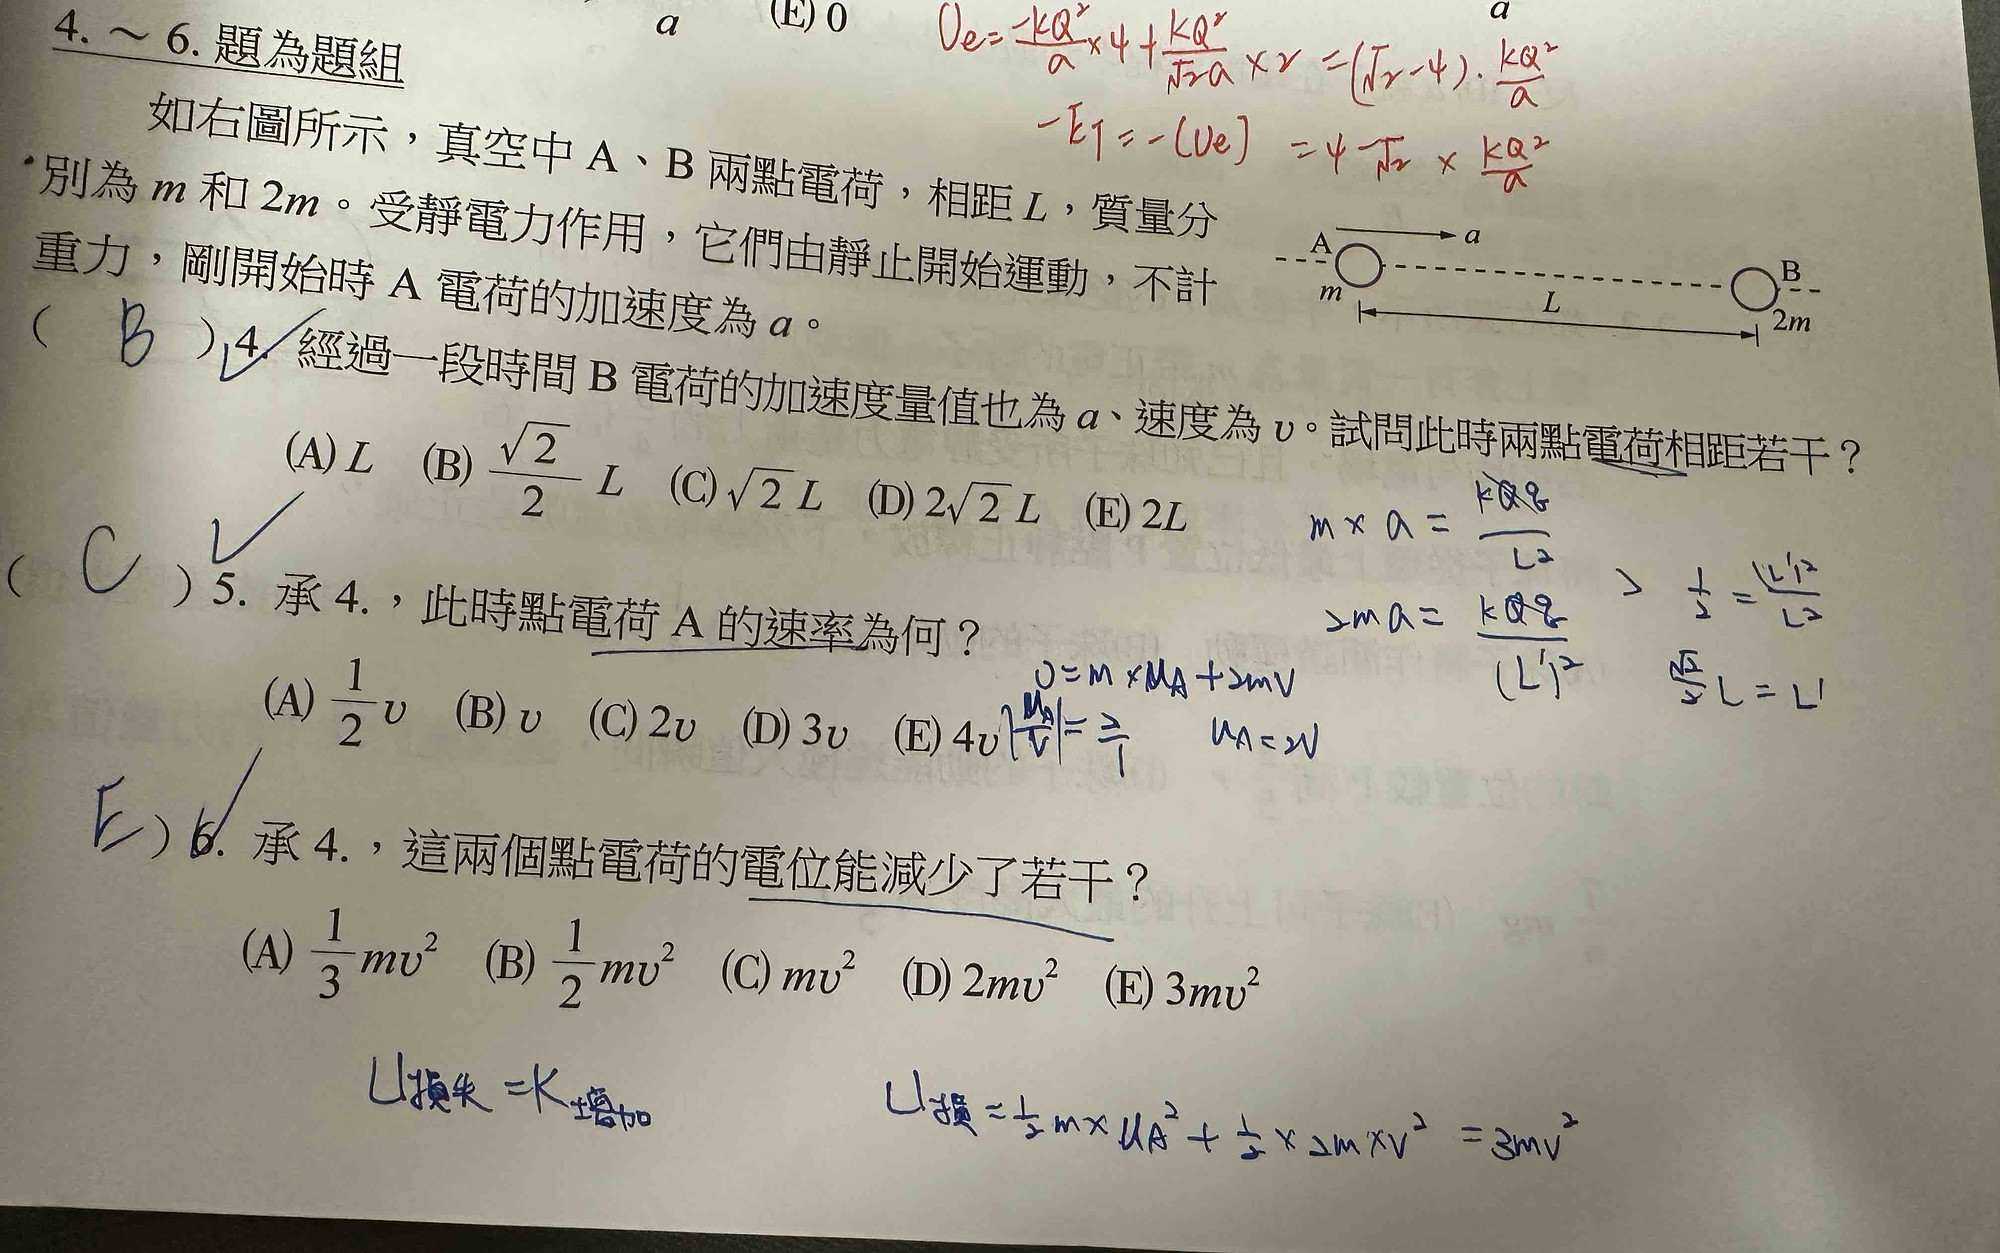 a (E) 0 a
Ue = -kQ²/a × 4 + kQ²/√2a × 2 = (√2-4) · kQ²/a
-ET = -(Ue) = 4-√2 × kQ²/a
4. ～ 6. 題為題組
如右圖所示，真空中 A、B 兩點電荷，相距 L，質量分
別為 m 和 2m。受靜電力作用，它們由靜止開始運動，不計
重力，剛開始時 A 電荷的加速度為 a。
A a B
m L 2m
( B ) 4. 經過一段時間 B 電荷的加速度量值也為 a、速度為 υ。試問此時兩點電荷相距若干？
(A) L (B) √2/2 L (C) √2 L (D) 2√2 L (E) 2L
m × a = kQq/L²
2ma = kQq/(L')²
> 1/2 = (L')²/L²
√2/2 L = L'
( C ) 5. 承 4.，此時點電荷 A 的速率為何？
(A) 1/2 υ (B) υ (C) 2υ (D) 3υ (E) 4υ
0 = m × μA + 2mV
|μA/V| = 2/1 μA = 2V
E ) 6. 承 4.，這兩個點電荷的電位能減少了若干？
(A) 1/3 mυ² (B) 1/2 mυ² (C) mυ² (D) 2mυ² (E) 3mυ²
U損失 = K增加
U損 = 1/2 m × μA² + 1/2 × 2m × V² = 3mV²